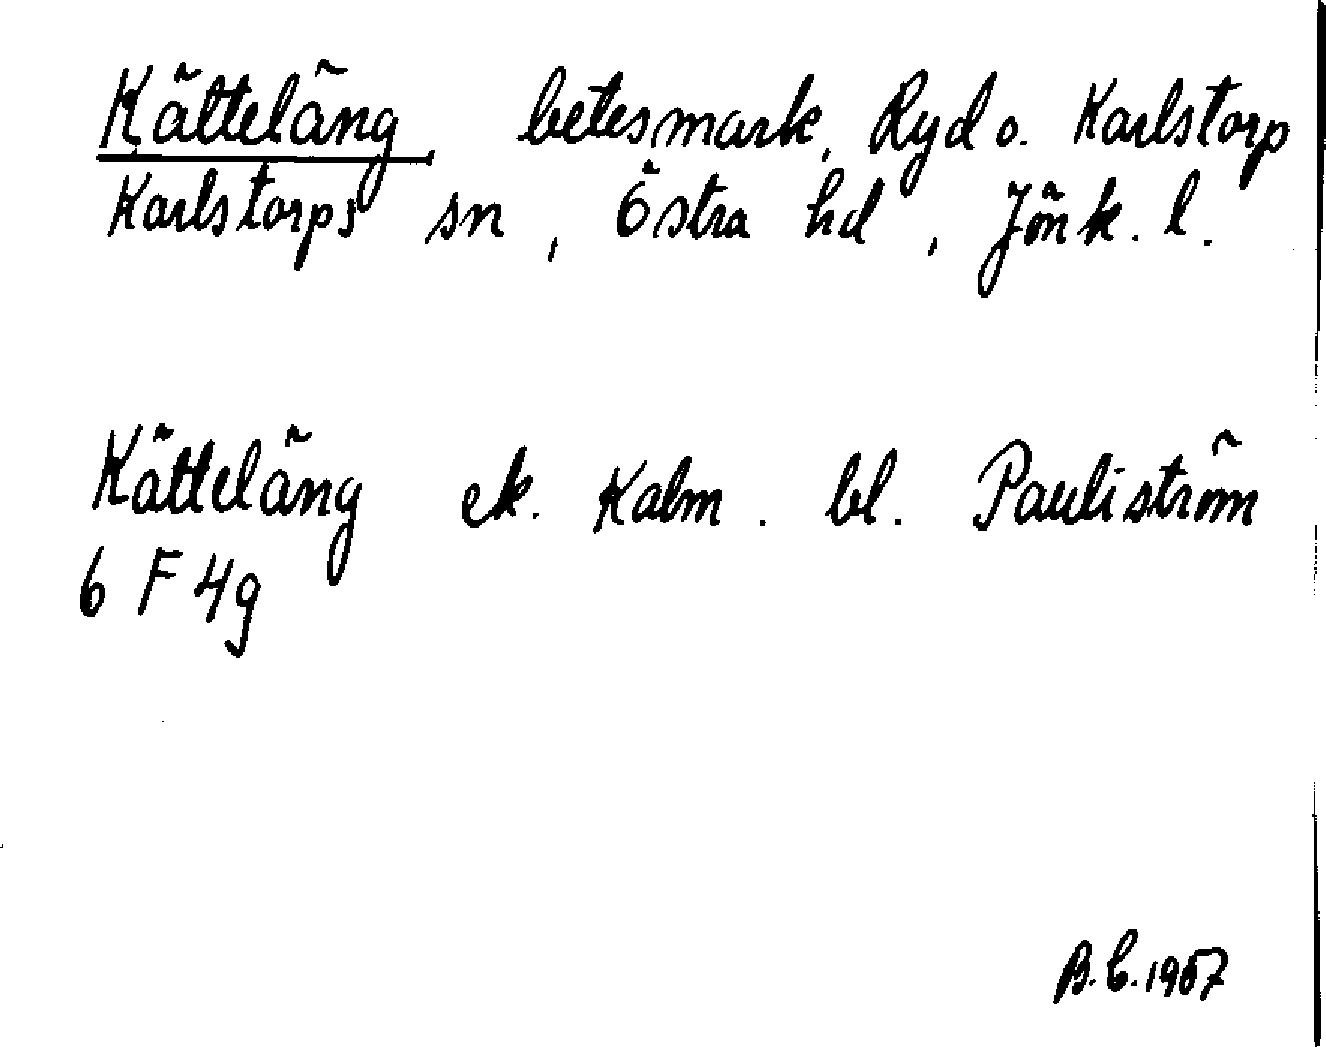 Kätteläng, betesmark, Ryd o. Karlstorp
Karlstorps sn, Östra hd, Jönk. l.
Kätteläng ek. Kalm. bl. Pauliström
6 F 4g
B.C. 1957